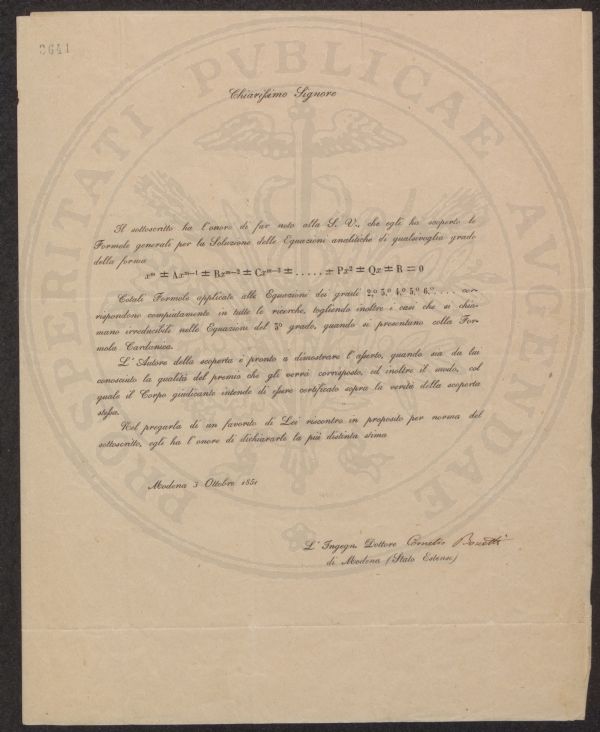 3641
PROSPERITATI PVBLICAE AVGENDAE
Chiarissimo Signore
Il sottoscritto ha l'onore di far noto alla S. V., che egli ha scoperto le
Formole generali per la Soluzione delle Equazioni analitiche di qualsivoglia grado
della forma
xᵐ ± Axᵐ⁻¹ ± Bxᵐ⁻² ± Cxᵐ⁻³ ± . . . . . ± Px² ± Qx ± R = 0
Cotali Formole applicate alle Equazioni dei gradi 2.º 3.º 4.º 5.º 6.º. . . . cor-
rispondono compiutamente in tutte le ricerche, togliendo inoltre i casi che si chia-
mano irreducibili nelle Equazioni del 3º grado, quando si presentano colla For-
mola Cardanica.
L'Autore della scoperta è pronto a dimostrare l'asserto, quando sia da lui
conosciuto la qualità del premio che gli verrà corrisposto, ed inoltre il modo, col
quale il Corpo giudicante intende di essere certificato sopra la verità della scoperta
stessa.
Nel pregarla di un favorito di Lei riscontro in proposito per norma del
sottoscritto, egli ha l'onore di dichiararle la più distinta stima
Modena 3 Ottobre 1851
L'Ingegn. Dottore Cornelio
di Modena (Stato Estense)